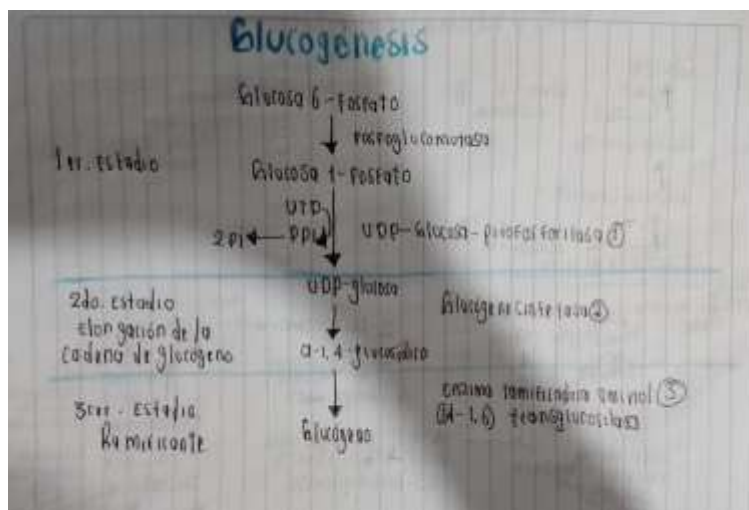 Glucogénesis
Glucosa 6-Fosfato
Fosfoglucomutasa
1er. Estadio
Glucosa 1-Fosfato
UTP
2pi PPi UDP-Glucosa-pirofosforilasa ①
UDP-glucosa
2do. Estadio
Elongación de la
cadena de glucógeno
②
α-1,4-glucosídico
3er. Estadio
Ramificante
Enzima ramificadora ③
1,6) transglucosilasa
Glucógeno